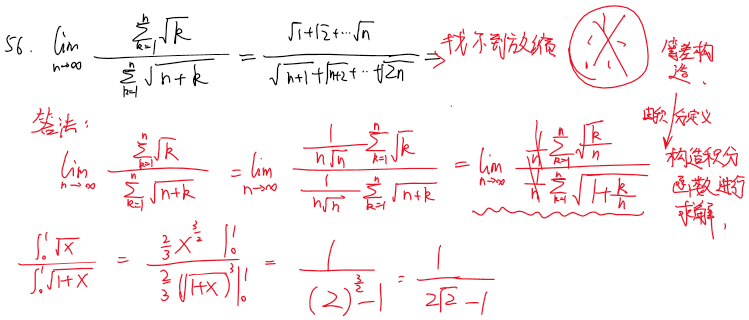 56. lim_{n→∞} \frac{\sum_{k=1}^{n} \sqrt{k}}{\sum_{k=1}^{n} \sqrt{n+k}} = \frac{\sqrt{1}+\sqrt{2}+⋯\sqrt{n}}{\sqrt{n+1}+\sqrt{n+2}+⋯+\sqrt{2n}} → 找不到放缩
等差构造.
由积分定义
构造积分函数进行求解.
答法:
lim_{n→∞} \frac{\sum_{k=1}^{n} \sqrt{k}}{\sum_{k=1}^{n} \sqrt{n+k}} = lim_{n→∞} \frac{\frac{1}{n\sqrt{n}} \sum_{k=1}^{n} \sqrt{k}}{\frac{1}{n\sqrt{n}} \sum_{k=1}^{n} \sqrt{n+k}} = lim_{n→∞} \frac{\frac{1}{n} \sum_{k=1}^{n} \sqrt{\frac{k}{n}}}{\frac{1}{n} \sum_{k=1}^{n} \sqrt{1+\frac{k}{n}}}
\frac{\int_0^1 \sqrt{x}}{\int_0^1 \sqrt{1+x}} = \frac{\frac{2}{3} x^{\frac{3}{2}} |_0^1}{\frac{2}{3} (\sqrt{1+x})^3 |_0^1} = \frac{1}{(2)^{\frac{3}{2}}-1} = \frac{1}{2\sqrt{2}-1}